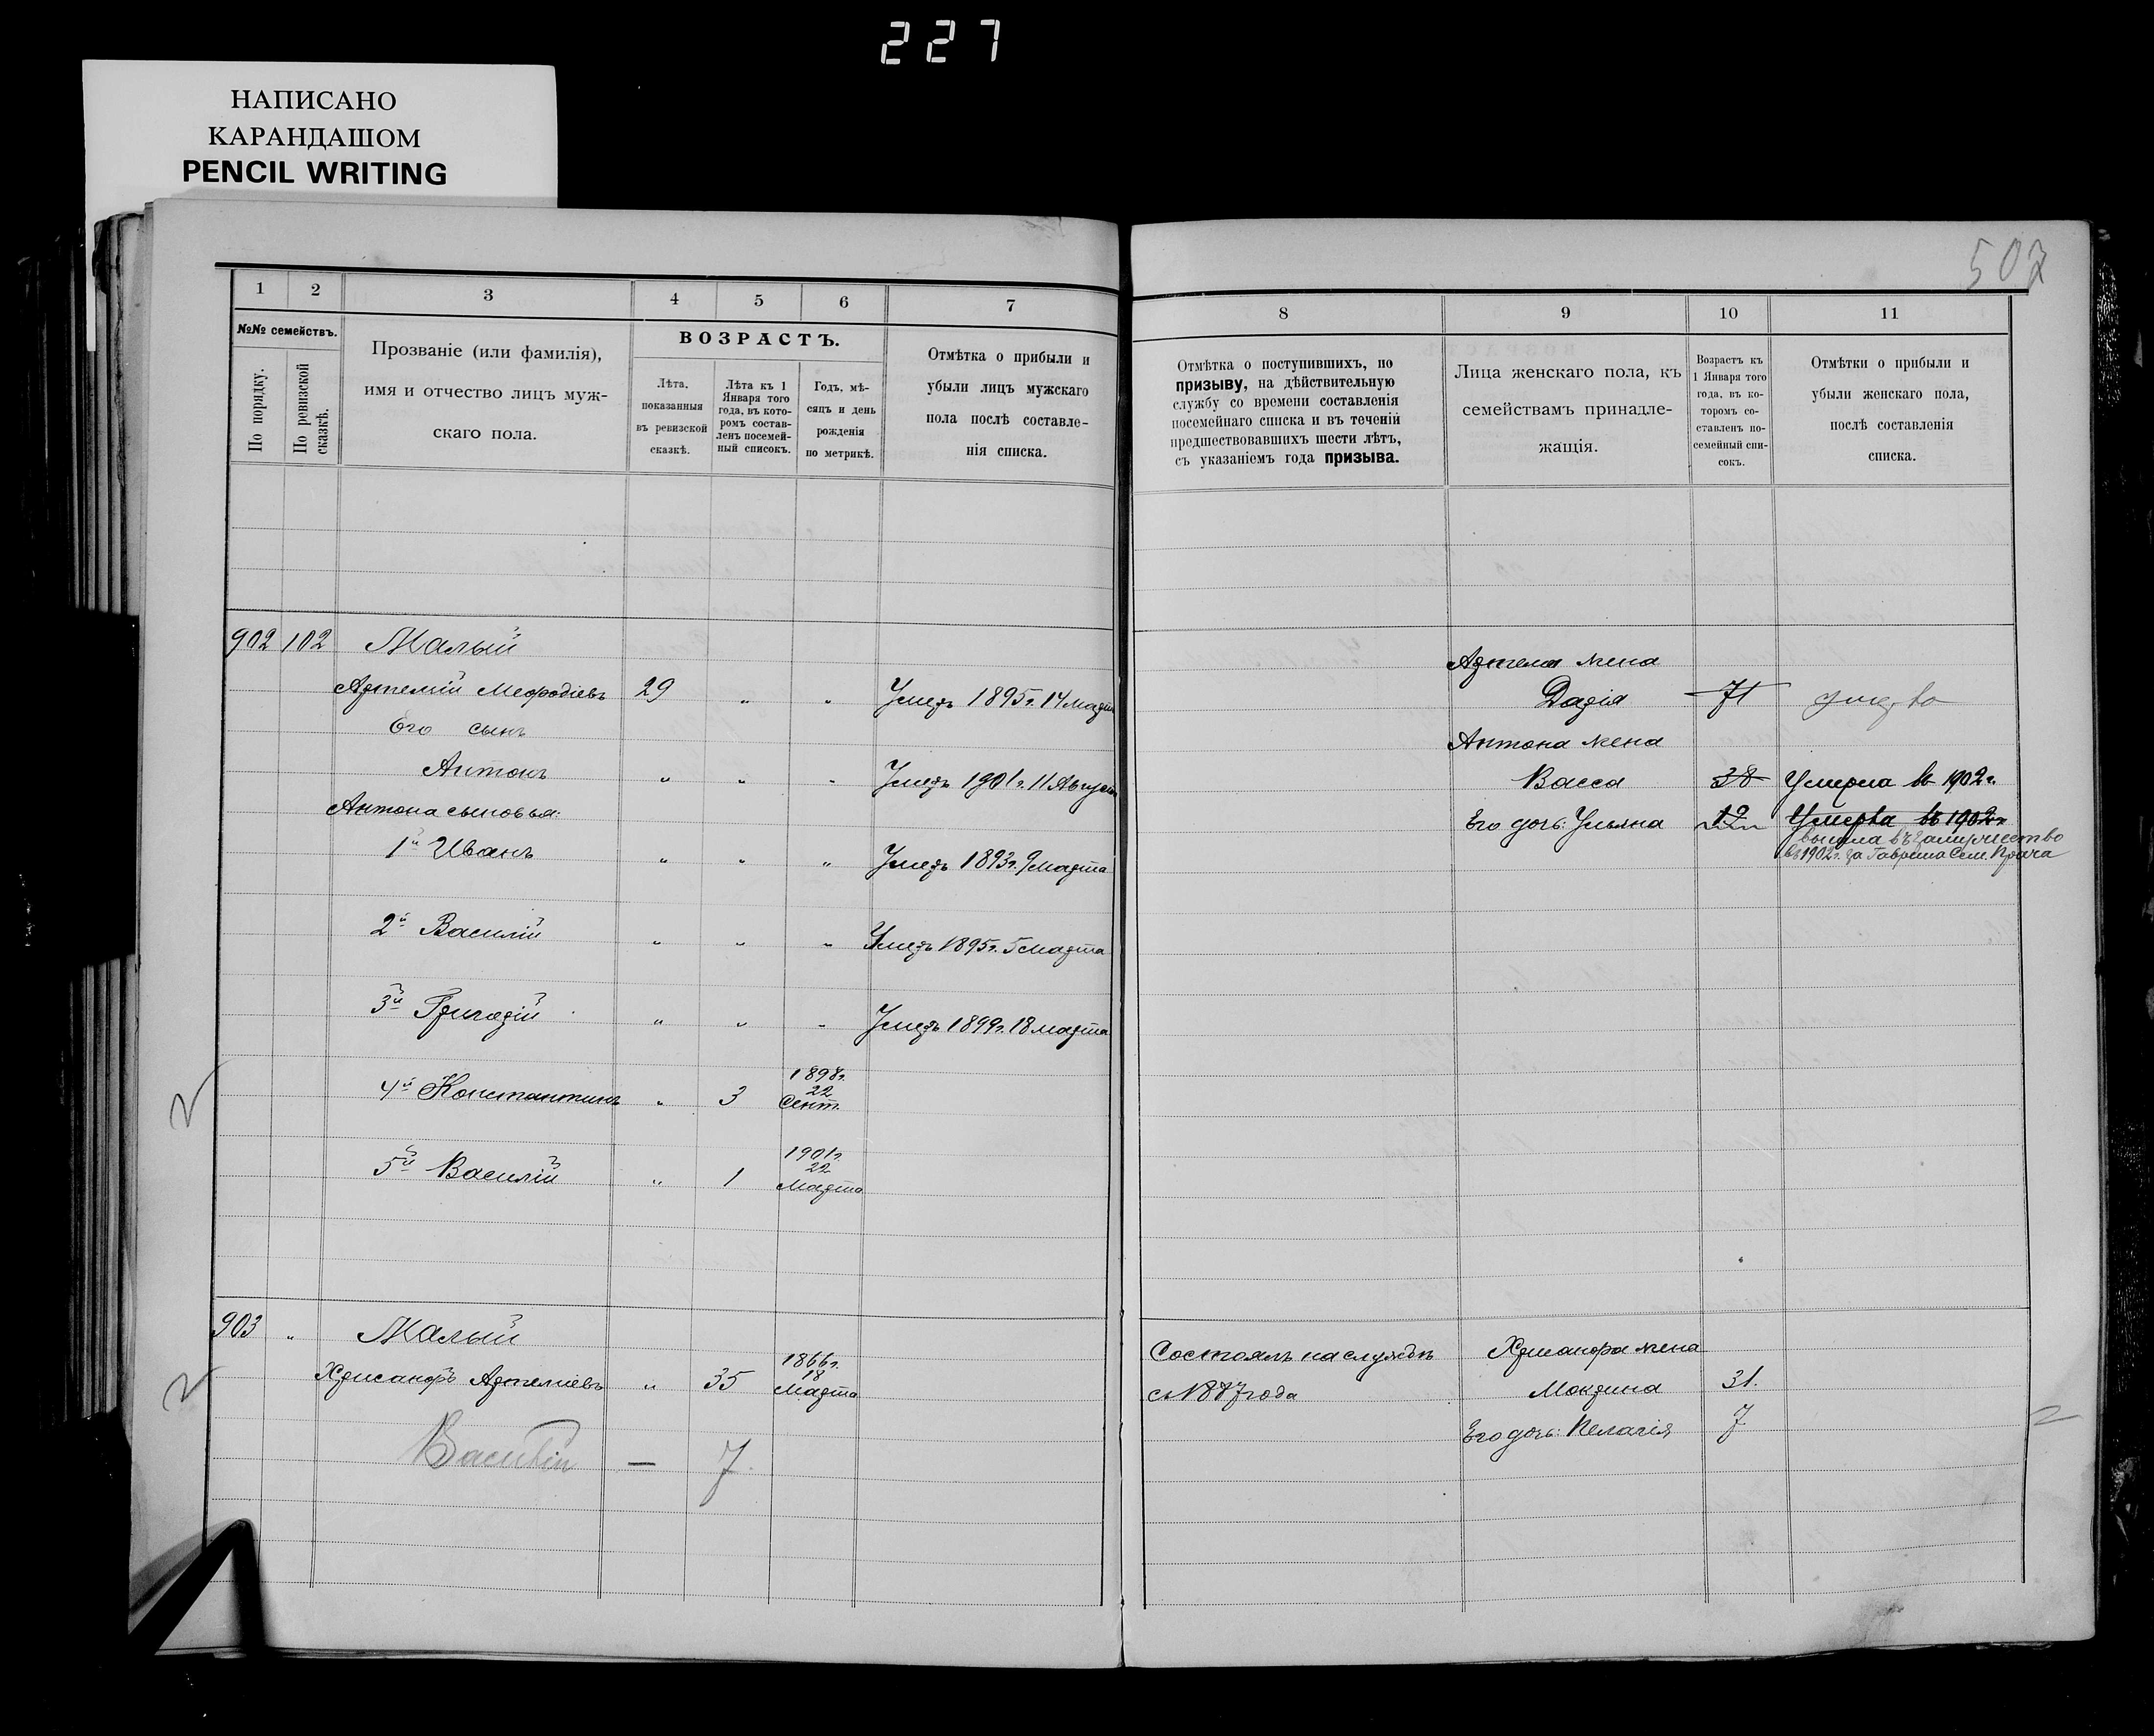 227
НАПИСАНО
КАРАНДАШОМ
PENCIL WRITING
1 2 3 4 5 6 7
№№ семействъ.
По порядку.
По ревизской сказкѣ.
Прозваніе (или фамилія),
имя и отчество лицъ муж-
скаго пола.
ВОЗРАСТЪ.
Лѣта,
показанныя
въ ревизской
сказкѣ.
Лѣта къ 1
Января того
года, въ кото-
ромъ состав-
ленъ посемей-
ный списокъ.
Годъ, мѣ-
сяцъ и день
рожденія
по метрикѣ.
Отмѣтка о прибыли и
убыли лицъ мужскаго
пола послѣ составле-
нія списка.
902 102 Малый
Артемій Мефодіевъ 29 " " Умеръ 1895г. 14 марта
Его сынъ
Антонъ " " " Умеръ 1901г. 11 Августа
Антона сыновья:
1й Иванъ " " " Умеръ 1893г. 9 марта
2й Василій " " " Умеръ 1895г. 5 марта
3й Григорій " " " Умеръ 1899г. 18 марта
4й Константинъ " 3 1898г. 22 Сент.
5й Василій " 1 1901г. 22 Марта
903 " Малый
Хрисанфъ Артеміевъ " 35 1866г. 18 Марта
Василій — 7
507
8 9 10 11
Отмѣтка о поступившихъ, по
призыву, на дѣйствительную
службу со времени составленія
посемейнаго списка и въ теченій
предшествовавшихъ шести лѣтъ,
съ указаніемъ года призыва.
Лица женскаго пола, къ
семействамъ принадле-
жащія.
Возрастъ къ
1 Января того
года, въ ко-
торомъ со-
ставленъ по-
семейный спи-
сокъ.
Отмѣтки о прибыли и
убыли женскаго пола,
послѣ составленія
списка.
Артема жена
Дарія 71
Антона жена
Васса 38 Умерла въ 1902г.
Его дочь: Ульяна 12 Умерла въ 1902г
вышла въ замужество
въ 1902г. за Гаврила Сем.
Состоялъ на службѣ Хрисанфа жена
съ 1887 года Мокрина 31.
Его дочь: Пелагія 7